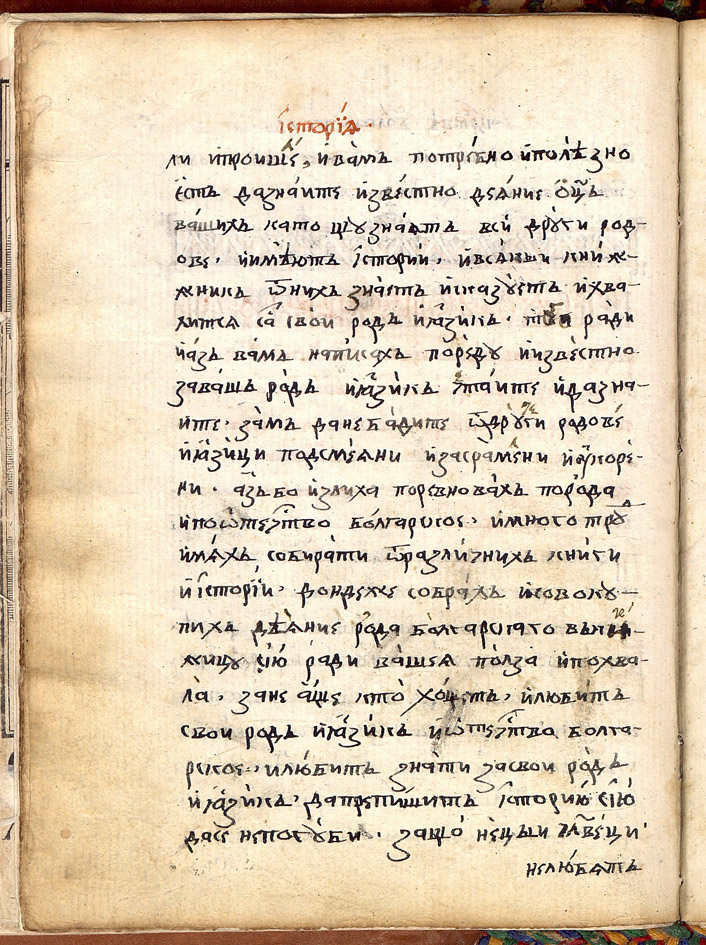 історїа.
ли ипроищеⷣ, и вамъ потребно иполѣзно
естъ дазнаите известно деяние ѿцъ
вашихъ като щузнаятъ вси други род-
ове. иимѣютъ історїи. ивсакьи книж-
жникъ ѿнихъ знаетъ исказуетъ ихва-
литса са свои родъ иязикъ. ради
иазъ вамъ написахъ пореду иизвестно
завашъ родъ иязикъ чтаите идазна-
ите. зинамъ данебадите ѿдруги родове
иязици подсмеяни изасрамени иукоре-
ни. азъ бо излиха поревновахъ порода
ипоѡтечтво болгарское. имного труⷣ
имяхъ собирати ѿразлизнихъ книги
иісторїи. дондеже собрахъ исовоку-
пихъ дѣяние рода болгарскаго въкни-
жицу сїю ради вашея полза ипохва-
ла. зане аще кто хощетъ. илюбитъ
свои родъ иязикъ иѡтечтво болга-
рское. илюбитъ знати засвои родъ
иязикъ. дапрепишитъ історию сїю
дасе непогуби. защо нецьи члвеци.
нелюбятъ